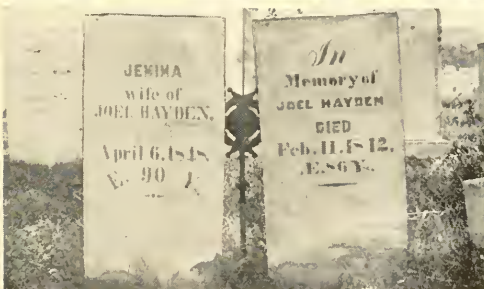 JEMIMA
wife of
JOEL HAYDEN,
April 6, 1848,
Æ. 90 Y.
In
Memory of
JOEL HAYDEN
DIED
Feb. 11, 1842,
Æ. 86 Ys.